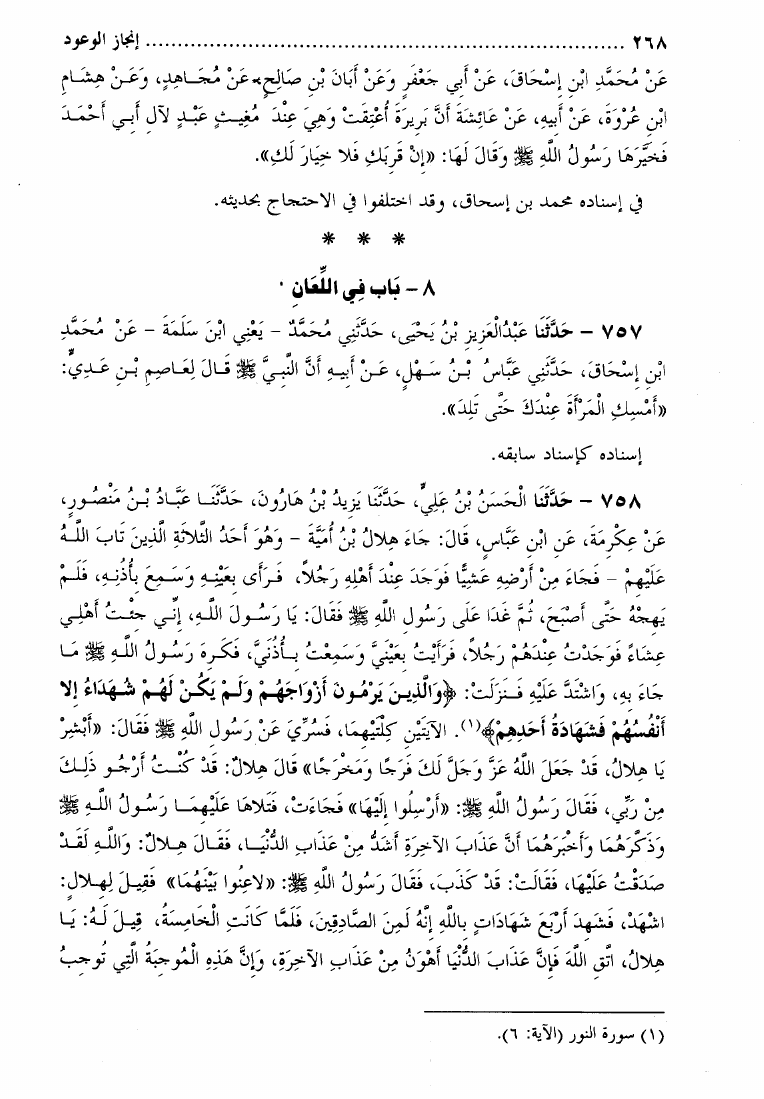 ٢٦٨ ........................................................................ إنجاز الوعود
عَنْ مُحَمَّدِ ابْنِ إِسْحَاقَ، عَنْ أَبي جَعْفَرٍ وَعَنْ أَبَانَ بْنِ صَالِحٍ، عَنْ مُجَـاهِدٍ، وَعَـنْ هِشَـامِ
ابْنِ عُرْوَةَ، عَنْ أَبِيهِ، عَنْ عَائِشَةَ أَنَّ بَرِيرَةَ أُعْتِقَتْ وَهِيَ عِنْدَ مُغِيـثٍ عَبْـدٍ لآلِ أَبـي أَحْمَـدَ
فَخَيَّرَهَا رَسُولُ اللَّهِ ﷺ وَقَالَ لَهَا: «إِنْ قَرِبَكِ فَلا خِيَارَ لَكِ».
في إسناده محمد بن إسحاق، وقد اختلفوا في الاحتجاج بحديثه.
* * *
٨ – بَاب فِي اللِّعَانِ
٧٥٧ – حَدَّثَنَا عَبْدُالْعَزِيزِ بْنُ يَحْيَى، حَدَّثَنِي مُحَمَّدٌ – يَعْنِي ابْنَ سَلَمَةَ – عَنْ مُحَمَّدِ
ابْنِ إِسْحَاقَ، حَدَّثَنِي عَبَّاسُ بْـنُ سَـهْلٍ، عَـنْ أَبِيـهِ أَنَّ النَّبِـيَّ ﷺ قَـالَ لِعَـاصِمِ بْـنِ عَـدِيٍّ:
«أَمْسِكِ الْمَرْأَةَ عِنْدَكَ حَتَّى تَلِدَ».
إسناده كإسناد سابقه.
٧٥٨ – حَدَّثَنَا الْحَسَنُ بْنُ عَلِيٍّ، حَدَّثَنَا يَزِيدُ بْنُ هَارُونَ، حَدَّثَنَـا عَبَّـادُ بْـنُ مَنْصُـورٍ،
عَنْ عِكْرِمَةَ، عَنِ ابْنِ عَبَّاسٍ، قَالَ: جَاءَ هِلالُ بْنُ أُمَيَّةَ – وَهُوَ أَحَدُ الثَّلاثَةِ الَّذِينَ تَابَ اللَّـهُ
عَلَيْهِمْ – فَجَاءَ مِنْ أَرْضِهِ عَشِيًّا فَوَجَدَ عِنْدَ أَهْلِهِ رَجُلاً، فَـرَأَى بِعَيْنِـهِ وَسَـمِعَ بِأُذُنِـهِ، فَلَـمْ
يَهِجْهُ حَتَّى أَصْبَحَ، ثُمَّ غَدَا عَلَى رَسُولِ اللَّهِ ﷺ فَقَالَ: يَا رَسُـولَ اللَّـهِ، إِنِّـي جِئْـتُ أَهْلِـي
عِشَاءً فَوَجَدْتُ عِنْدَهُمْ رَجُلاً، فَرَأَيْتُ بِعَيْنَيَّ وَسَمِعْتُ بِـأُذُنَيَّ، فَكَـرِهَ رَسُـولُ اللَّـهِ ﷺ مَـا
جَاءَ بِهِ، وَاشْتَدَّ عَلَيْهِ فَـنَزَلَتْ: ﴿وَالَّذِيـنَ يَرْمُـونَ أَزْوَاجَهُـمْ وَلَـمْ يَكُـنْ لَهُـمْ شُـهَدَاءُ إِلا
أَنْفُسُهُمْ فَشَهَادَةُ أَحَدِهِمْ﴾(١). الآيَتَيْنِ كِلْتَيْهِمَا، فَسُرِّيَ عَنْ رَسُولِ اللَّهِ ﷺ فَقَالَ: «أَبْشِرْ
يَا هِلالُ، قَدْ جَعَلَ اللَّهُ عَزَّ وَجَلَّ لَكَ فَرَجًا وَمَخْرَجًا» قَالَ هِلالٌ: قَدْ كُنْـتُ أَرْجُـو ذَلِـكَ
مِنْ رَبِّي، فَقَالَ رَسُولُ اللَّهِ ﷺ: «أَرْسِلُوا إِلَيْهَا» فَجَاءَتْ، فَتَلاهَا عَلَيْهِمَـا رَسُـولُ اللَّـهِ ﷺ
وَذَكَّرَهُمَا وَأَخْبَرَهُمَا أَنَّ عَذَابَ الآخِرَةِ أَشَدُّ مِنْ عَذَابِ الدُّنْيَـا، فَقَـالَ هِـلالٌ: وَاللَّـهِ لَقَـدْ
صَدَقْتُ عَلَيْهَا، فَقَالَتْ: قَدْ كَذَبَ، فَقَالَ رَسُولُ اللَّهِ ﷺ: «لاعِنُوا بَيْنَهُمَا» فَقِيـلَ لِهِـلالٍ:
اشْهَدْ، فَشَهِدَ أَرْبَعَ شَهَادَاتٍ بِاللَّهِ إِنَّهُ لَمِنَ الصَّادِقِينَ، فَلَمَّا كَانَتِ الْخَامِسَةُ، قِيـلَ لَـهُ: يَـا
هِلالُ، اتَّقِ اللَّهَ فَإِنَّ عَذَابَ الدُّنْيَا أَهْوَنُ مِنْ عَذَابِ الآخِرَةِ، وَإِنَّ هَذِهِ الْمُوجِبَةُ الَّتِي تُوجِبُ
(١) سورة النور (الآية: ٦).